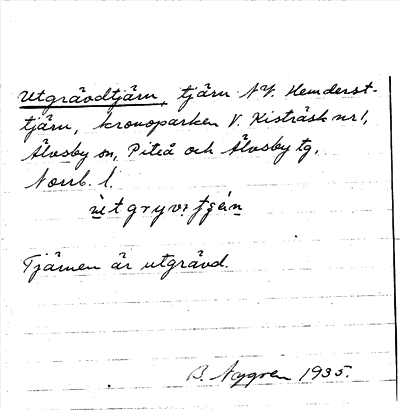 Utgrävdtjärn, tjärn NV. Hemderst-
tjärn, kronoparken V. Kisträsk nr 1,
Älvsby sn, Piteå och Älvsby tg,
Norrb. l.
Tjärnen är utgrävd.
B. Nygren 1935.